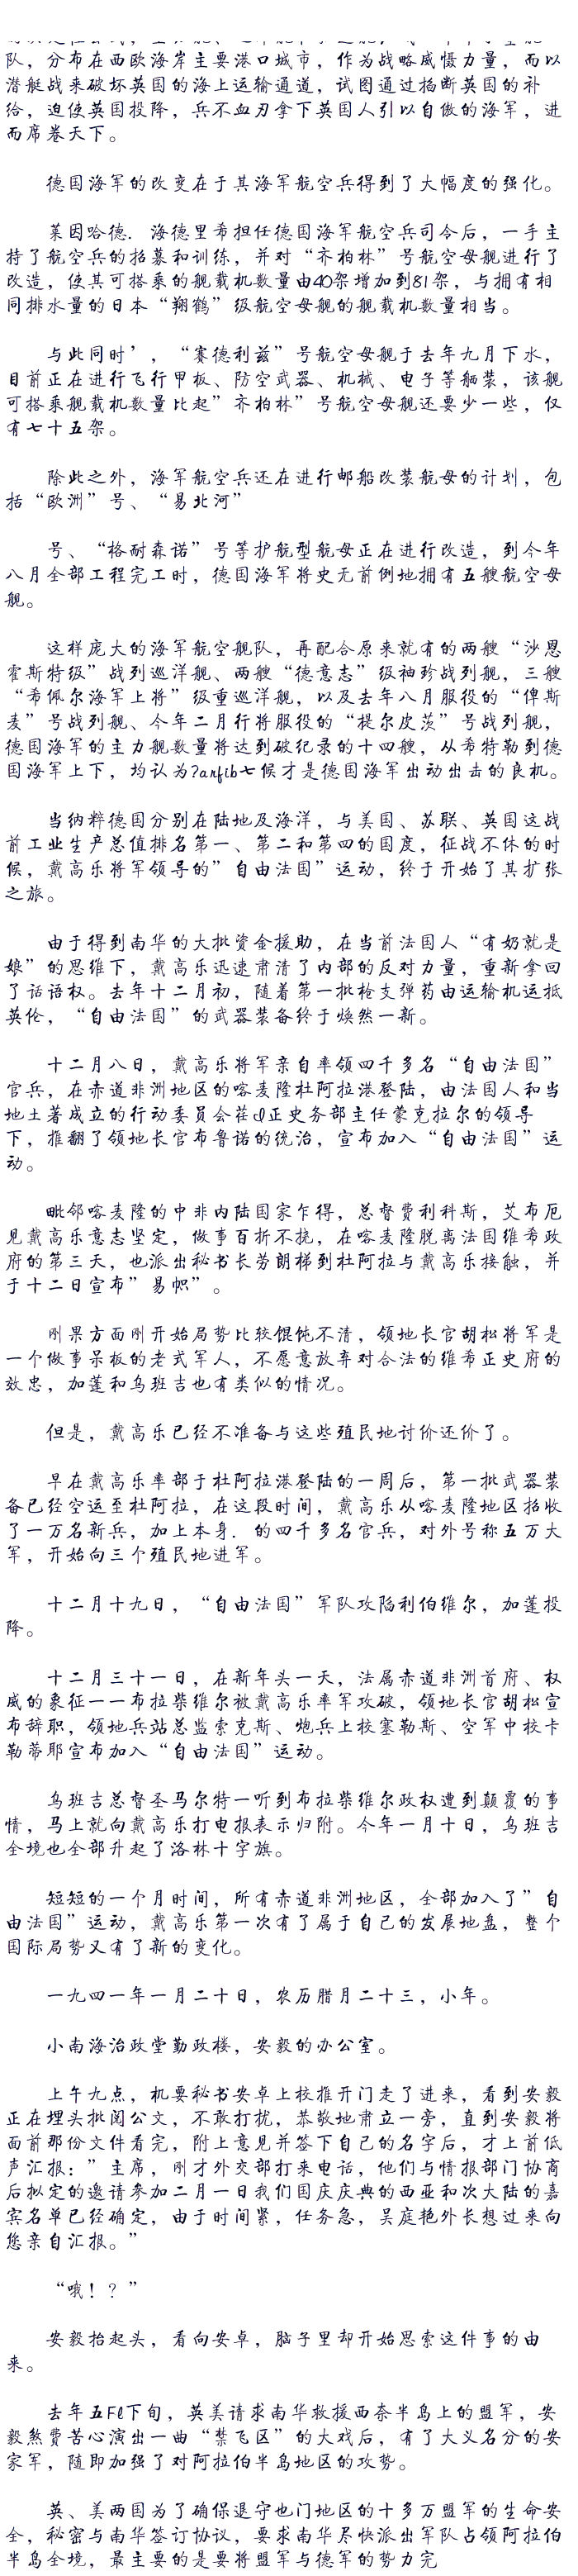 队，分布在西欧海岸主要港口城市，作为战略威慑力量，而以
潜艇战来破坏英国的海上运输通道，试图通过掐断英国的补
给，迫使英国投降，兵不血刃拿下英国人引以自傲的海军，进
而席卷天下。
德国海军的改变在于其海军航空兵得到了大幅度的强化。
莱因哈德．海德里希担任德国海军航空兵司令后，一手主
持了航空兵的招募和训练，并对“齐柏林”号航空母舰进行了
改造，使其可搭乘的舰载机数量由40架增加到81架，与拥有相
同排水量的日本“翔鹤”级航空母舰的舰载机数量相当。
与此同时’，“赛德利兹”号航空母舰于去年九月下水，
目前正在进行飞行甲板、防空武器、机械、电子等舾装，该舰
可搭乘舰载机数量比起”齐柏林”号航空母舰还要少一些，仅
有七十五架。
除此之外，海军航空兵还在进行邮船改装航母的计划，包
括“欧洲”号、“易北河”
号、“格耐森诺”号等护航型航母正在进行改造，到今年
八月全部工程完工时，德国海军将史无前例地拥有五艘航空母
舰。
这样庞大的海军航空舰队，再配合原来就有的两艘“沙恩
霍斯特级”战列巡洋舰、两艘“德意志”级袖珍战列舰，三艘
“希佩尔海军上将”级重巡洋舰，以及去年八月服役的“俾斯
麦”号战列舰、今年二月行将服役的“提尔皮茨”号战列舰，
德国海军的主力舰数量将达到破纪录的十四艘，从希特勒到德
国海军上下，均认为?anfib七候才是德国海军出动出击的良机。
当纳粹德国分别在陆地及海洋，与美国、苏联、英国这战
前工业生产总值排名第一、第二和第四的国度，征战不休的时
候，戴高乐将军领导的”自由法国”运动，终于开始了其扩张
之旅。
由于得到南华的大批资金援助，在当前法国人“有奶就是
娘”的思维下，戴高乐迅速肃清了内部的反对力量，重新拿回
了话语权。去年十二月初，随着第一批枪支弹药由运输机运抵
英伦，“自由法国”的武器装备终于焕然一新。
十二月八日，戴高乐将军亲自率领四千多名“自由法国”
官兵，在赤道非洲地区的喀麦隆杜阿拉港登陆，由法国人和当
地土著成立的行动委员会荏cl正史务部主任蒙克拉尔的领导
下，推翻了领地长官布鲁诺的统治，宣布加入“自由法国”运
动。
毗邻喀麦隆的中非内陆国家乍得，总督费利科斯，艾布厄
见戴高乐意志坚定，做事百折不挠，在喀麦隆脱离法国维希政
府的第三天，也派出秘书长劳朗梯到杜阿拉与戴高乐接触，并
于十二日宣布”易帜”。
刚果方面刚开始局势比较馄饨不清，领地长官胡松将军是
一个做事呆板的老式军人，不愿意放弃对合法的维希正史府的
效忠，加蓬和乌班吉也有类似的情况。
但是，戴高乐已经不准备与这些殖民地讨价还价了。
早在戴高乐率部于杜阿拉港登陆的一周后，第一批武器装
备已经空运至杜阿拉，在这段时间，戴高乐从喀麦隆地区招收
了一万名新兵，加上本身．的四千多名官兵，对外号称五万大
军，开始向三个殖民地进军。
十二月十九日，“自由法国”军队攻陷利伯维尔，加蓬投
降。
十二月三十一日，在新年头一天，法属赤道非洲首府、权
威的象征一一布拉柴维尔被戴高乐率军攻破，领地长官胡松宣
布辞职，领地兵站总监索克斯、炮兵上校塞勒斯、空军中校卡
勒蒂耶宣布加入“自由法国”运动。
乌班吉总督圣马尔特一听到布拉柴维尔政权遭到颠覆的事
情，马上就向戴高乐打电报表示归附。今年一月十日，乌班吉
全境也全部升起了洛林十字旗。
短短的一个月时间，所有赤道非洲地区，全部加入了”自
由法国”运动，戴高乐第一次有了属于自己的发展地盘，整个
国际局势又有了新的变化。
一九四一年一月二十日，农历腊月二十三，小年。
小南海治政堂勤政楼，安毅的办公室。
上午九点，机要秘书安卓上校推开门走了进来，看到安毅
正在埋头批阅公文，不敢打扰，恭敬地肃立一旁，直到安毅将
面前那份文件看完，附上意见并签下自己的名字后，才上前低
声汇报：”主席，刚才外交部打来电话，他们与情报部门协商
后拟定的邀请参加二月一日我们国庆庆典的西亚和次大陆的嘉
宾名单已经确定，由于时间紧，任务急，吴庭艳外长想过来向
您亲自汇报。”
“哦！？”
安毅抬起头，看向安卓，脑子里却开始思索这件事的由
来。
去年五Fl下旬，英美请求南华救援西奈半岛上的盟军，安
毅煞费苦心演出一曲“禁飞区”的大戏后，有了大义名分的安
家军，随即加强了对阿拉伯半岛地区的攻势。
英、美两国为了确保退守也门地区的十多万盟军的生命安
全，秘密与南华签订协议，要求南华尽快派出军队占领阿拉伯
半岛全境，最主要的是要将盟军与德军的势力完